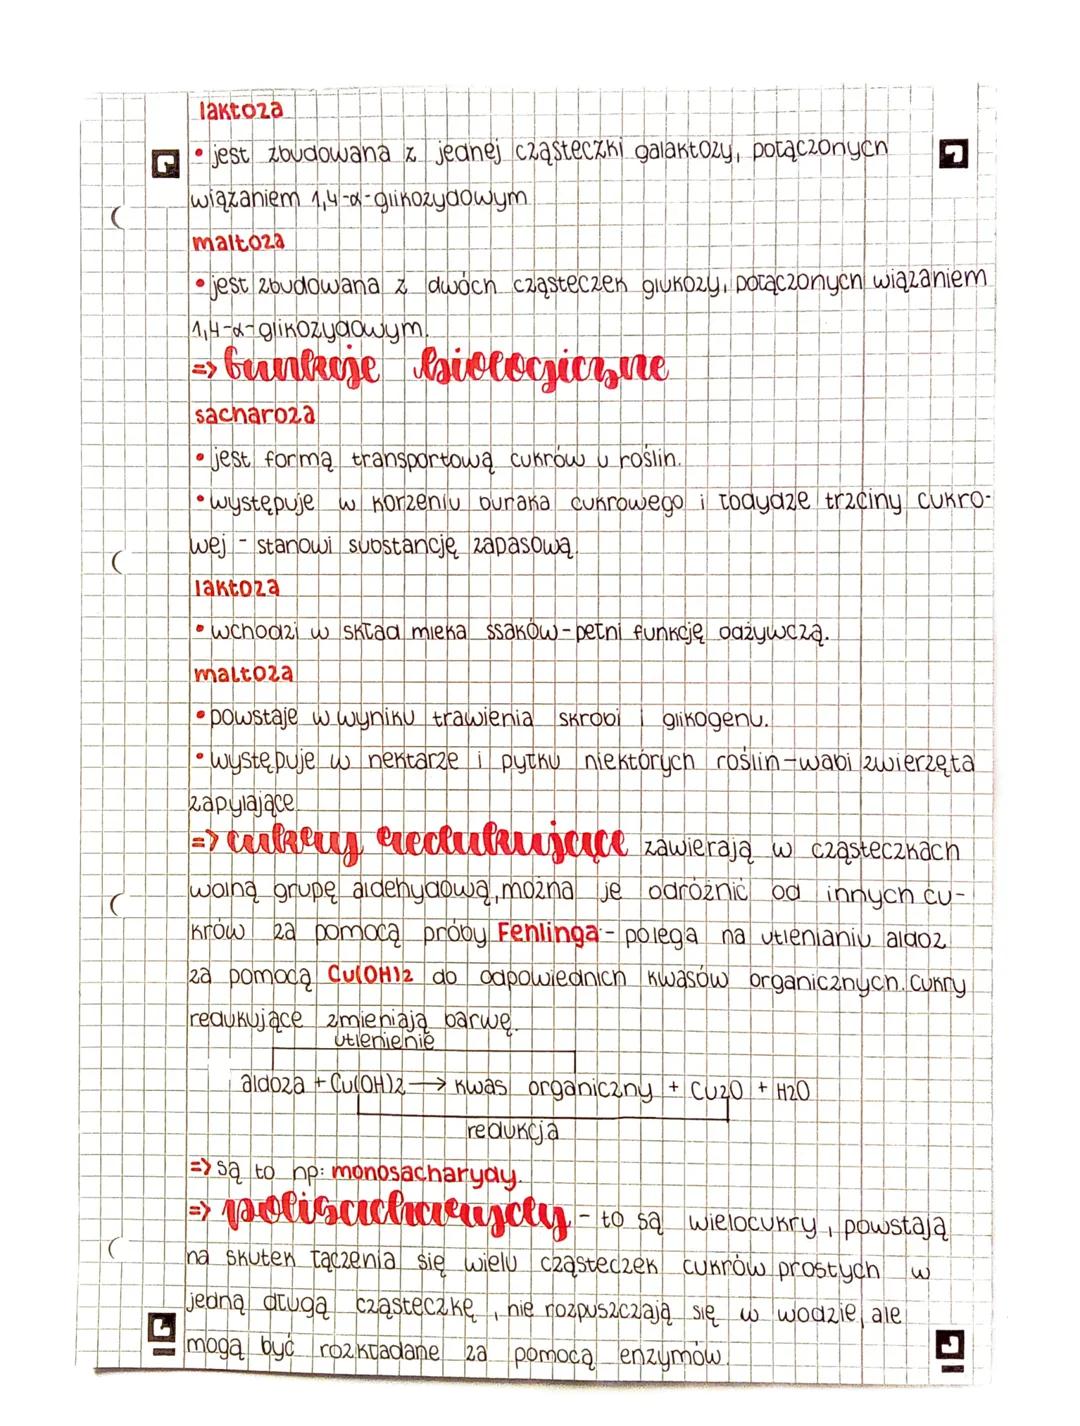 laktoza
• jest zbudowana z jednej cząsteczki galaktozy, połączonych
wiązaniem 1,4-α-glikozydowym
maltoza
• jest zbudowana z dwóch cząsteczek glukozy, połączonych wiązaniem
1,4-α-glikozydowym.
=> funkcje biologiczne
sacharoza
• jest formą transportową cukrów u roślin.
• występuje w korzeniu buraka cukrowego i łodydze trzciny cukro-
wej - stanowi substancję zapasową.
laktoza
• wchodzi w skład mleka ssaków - pełni funkcję odżywczą.
maltoza
• powstaje w wyniku trawienia skrobi i glikogenu.
• występuje w nektarze i pyłku niektórych roślin - wabi zwierzęta
zapylające.
=> cukry redukujące zawierają w cząsteczkach
wolną grupę aldehydową, można je odróżnić od innych cu-
krów za pomocą próby Fehlinga - polega na utlenianiu aldoz
za pomocą Cu(OH)2 do odpowiednich kwasów organicznych. Cukry
redukujące zmieniają barwę.
utlenienie
aldoza + Cu(OH)2 → kwas organiczny + Cu2O + H2O
redukcja
=> są to np: monosacharydy.
=> polisacharydy - to są wielocukry, powstają
na skutek łączenia się wielu cząsteczek cukrów prostych w
jedną długą cząsteczkę, nie rozpuszczają się w wodzie, ale
mogą być rozkładane za pomocą enzymów.